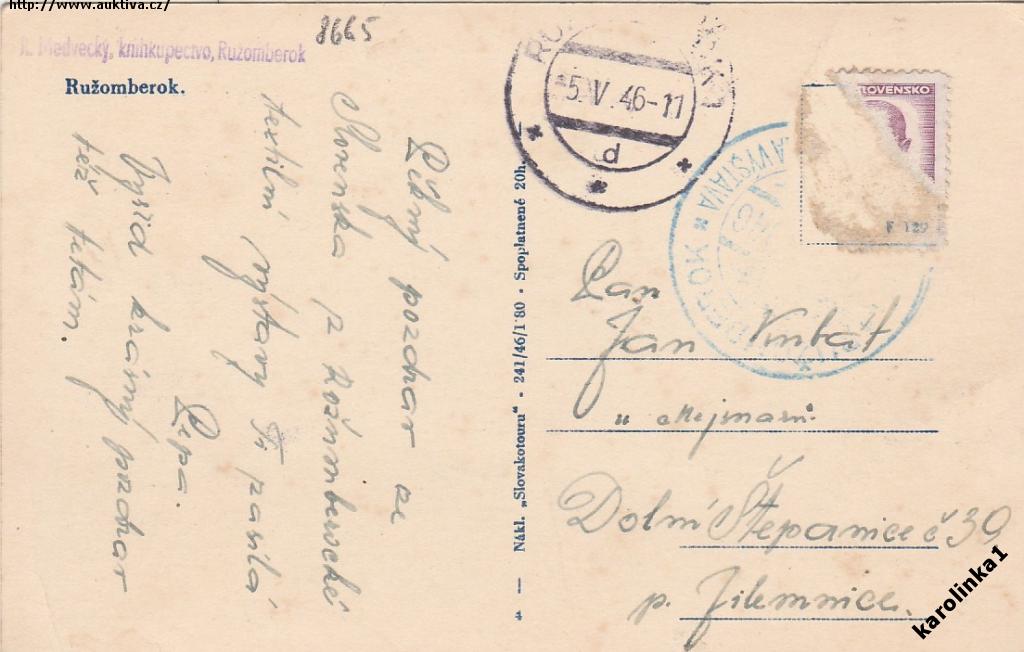 http://www.auktiva.cz/
8665
Medvecký, kníhkupectvo, Ružomberok
Ružomberok.
Líbný pozdrav ze
Slovenska z
textilní výstavy Ti zasílá
Pepa.
Vyřiď krásný pozdrav
též tetám.
Nákl. „Slovakotouru" - 241/46/1·80 - Spoplatnené 20h.
4
5. V. 46-11
d
VÝSTAVA
SLOVENSKO
Pan
Jan
u
Dolní Štěpanice č 39
p. Jilemnice.
karolinka1